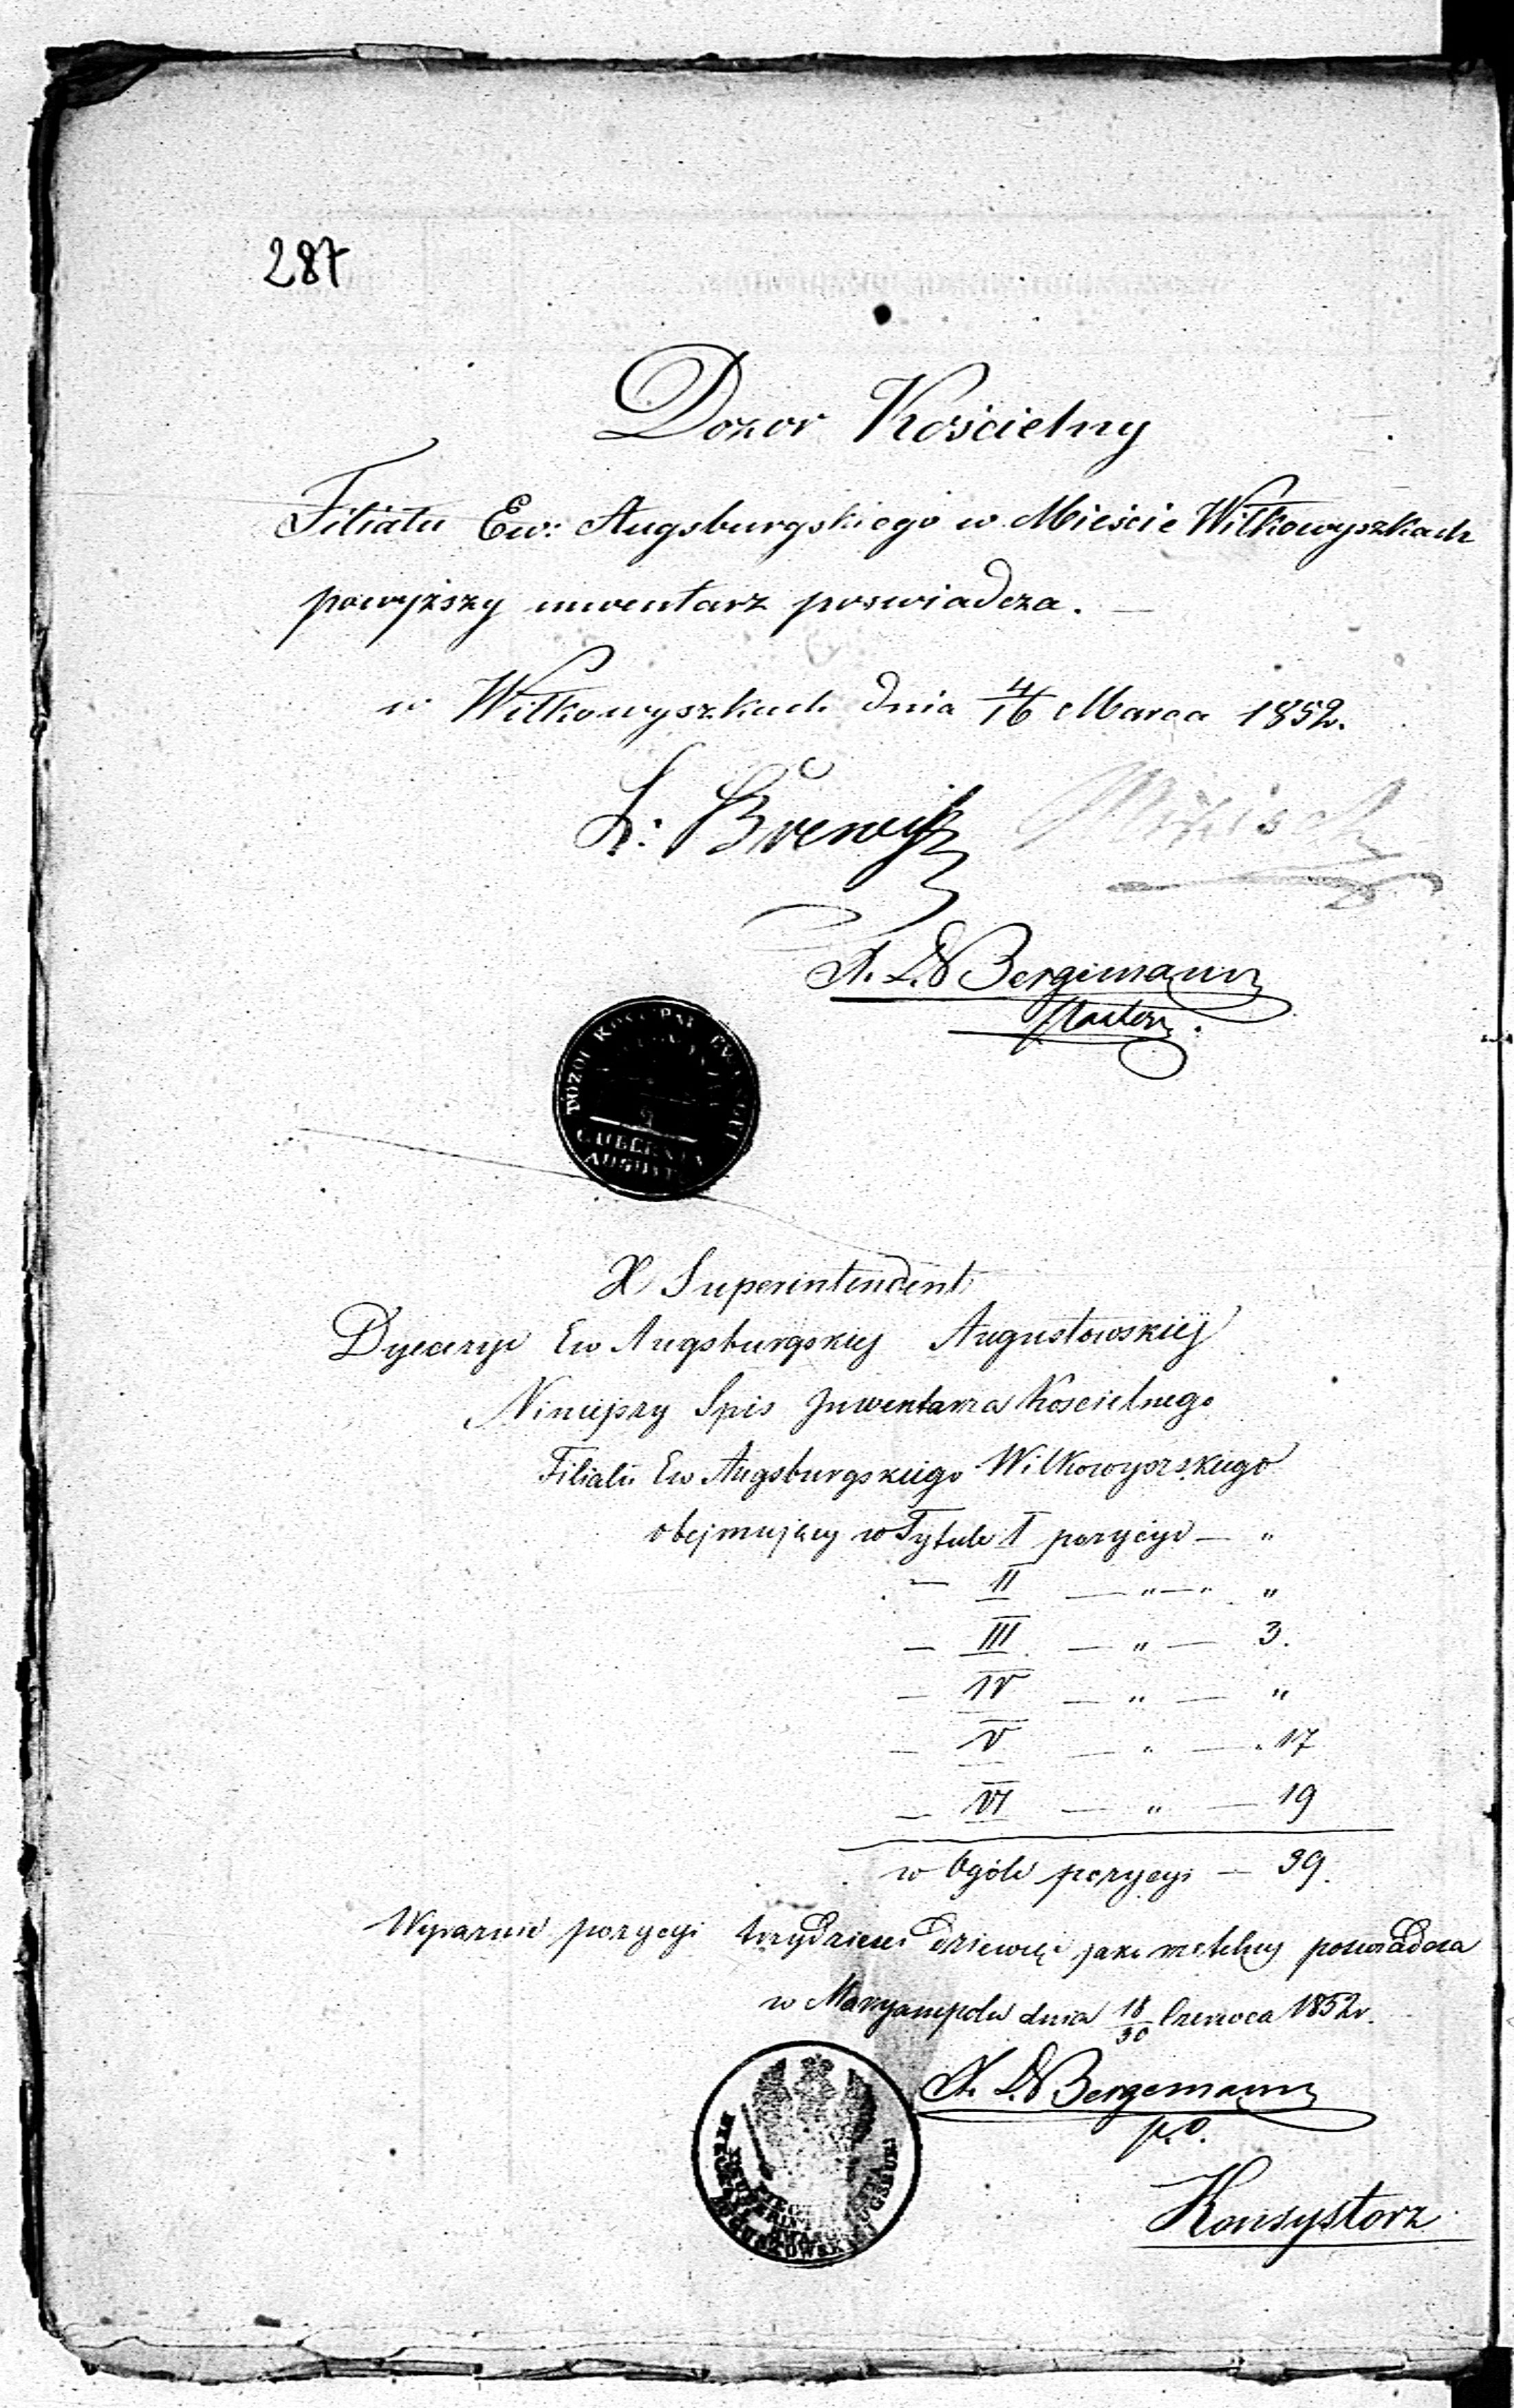 287
Dozor Kościelny
Filiału Ew: Augsburgskiego w Mieście Wiłkowyszkach
powyższy inwentarz poswiadcza. —
w Wiłkowyszkach dnia 4/16 Marca 1852.
A. L. Bergemann
Pastor.
DOZOR KOSC
GUBERNIA
AUGUST
X Superintendent
Dyecezyi Ew Augsburgskiej Augustowskiej
Niniejszy Spis Inwentarza Kościelnego
Filiału Ew Augsburgskiego Wilkowyszskiego
obejmujący w Tytule I pozycyi — "
— II — " — "
— III — " — 3.
— IV — " — "
— V — " — 17
— VI — " — 19
w Ogóle pozycyi — 39.
Wyraznie pozycyi trzydzieści dziewięć jako poswiadcza
w Maryampolu dnia 18/30 Czerwca 1852 r.
A. L. Bergemann
p.o.
Konsystorz